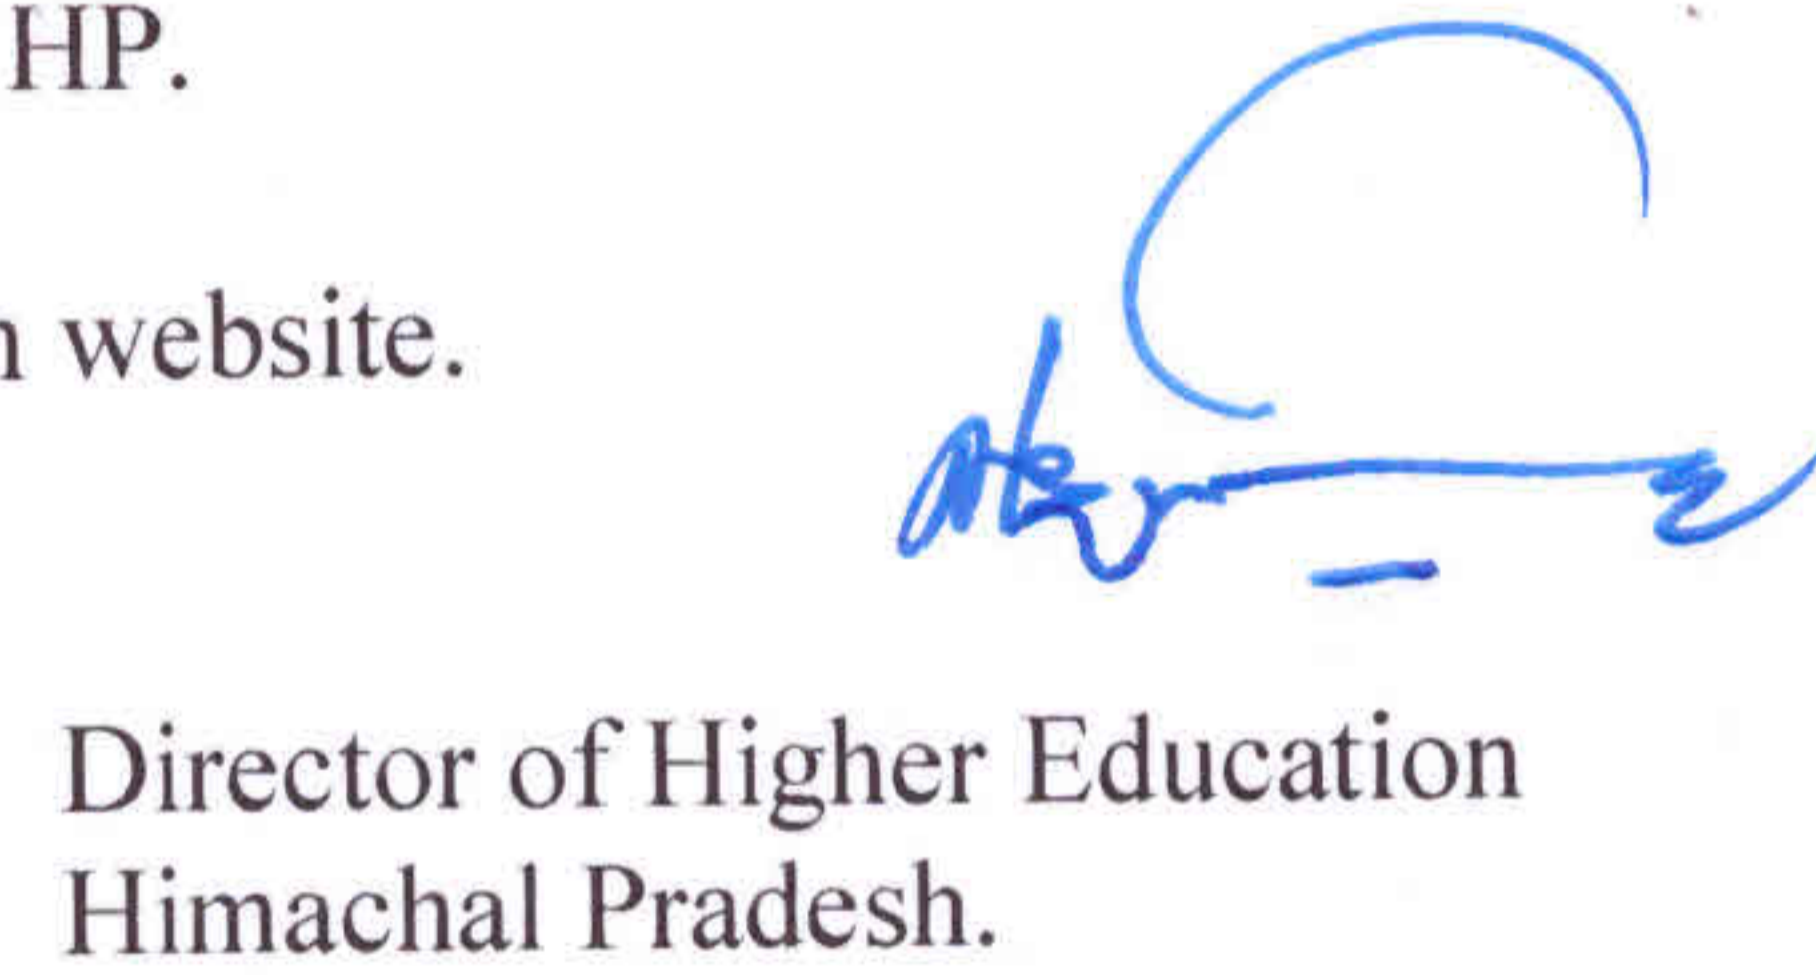 HP.
website.
Director of Higher Education
Himachal Pradesh.